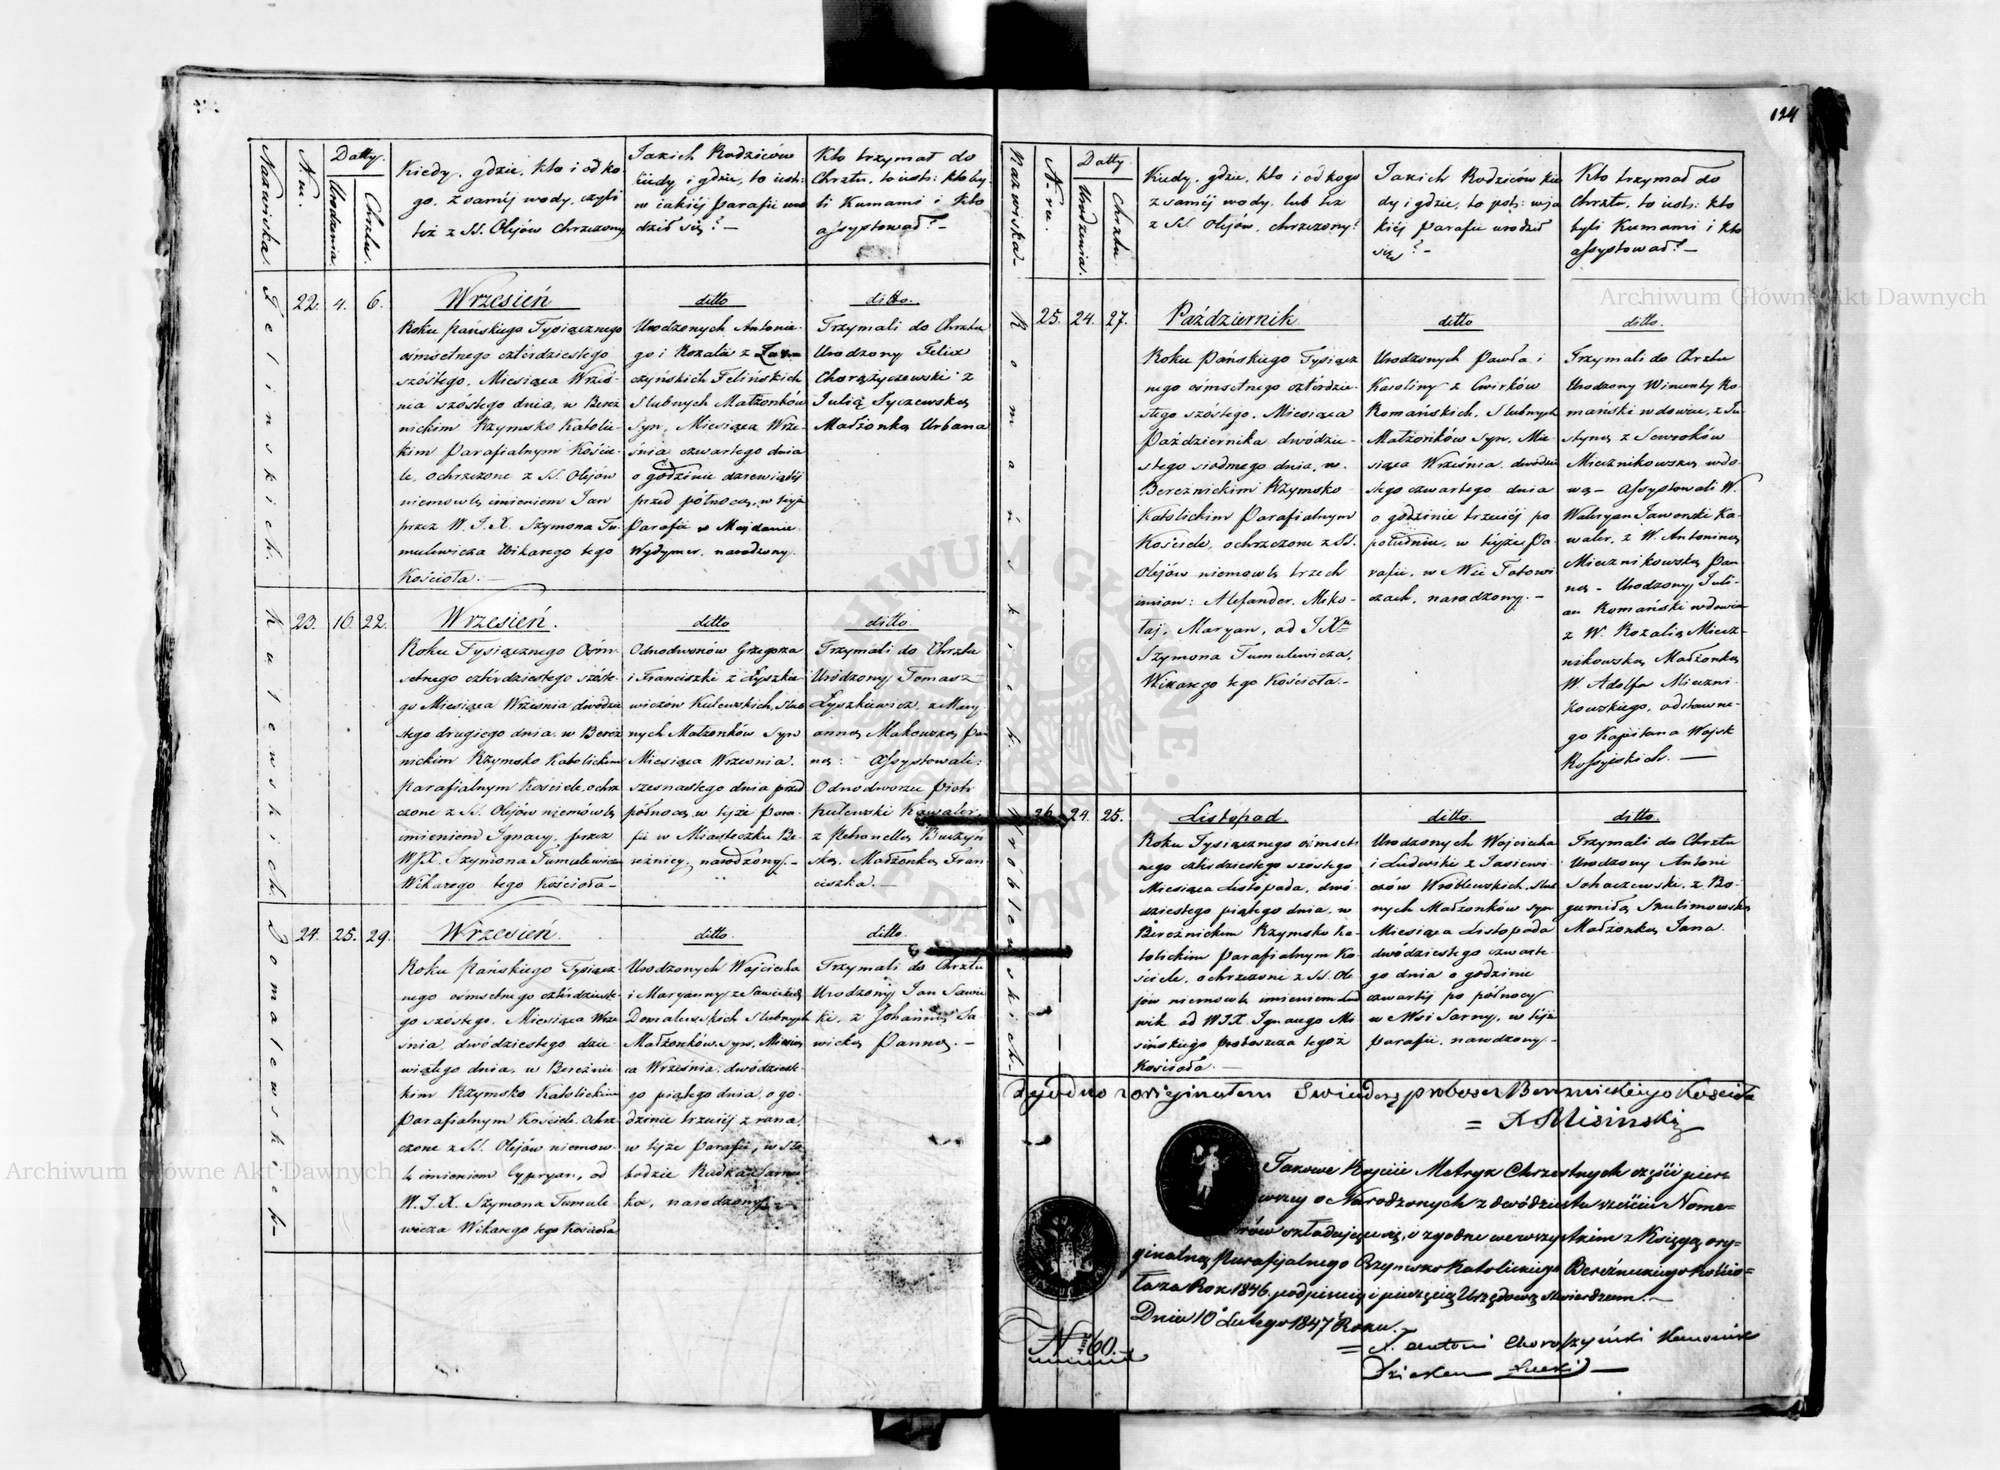 124
Nazwiska
N. ru.
Datty.
Urodzenia.
Chrztu.
Kiedy, gdzie, kto i od ko-
go, z samej wody, czyli
też z SS. Olejów chrzczony
Jakich Rodziców
kiedy i gdzie, to iest:
w iakiéj Parafii uro
dził się? –
Kto trzymał do
Chrztu, to iest: kto by-
li Kumami i kto
assystował? –
Felinskich.
22. 4. 6.
Wrzesień
Roku Pańskiego Tysiącznego
ośmsetnego czterdziestego
szóstego, Miesiąca Wrześ-
nia szóstego dnia, w Bereź
nickim Rzymsko Katolic-
kim Parafialnym Koście-
le, ochrzczone z SS. Olejów
niemowlę imieniem Jan
przez W. J. X. Szymona Tu-
mulewicza Wikarego tego
Kościoła. –
ditto
Urodzonych Antonie-
go i Rozalii z
czyńskich Felińskich
Slubnych Małżonków
Syn, Miesiąca Wrze-
śnia czwartego dnia
o godzinie dziewiątéj
przed północą, w tejże
Parafii w Majdanie
Wydymer, narodzony.
ditto.
Trzymali do Chrztu
Urodzony Felix
Chorążyczewski z
Julią Syczewską
Małżonką Urbana
Kulewskich.
23. 16. 22.
Wrzesień.
Roku Tysiącznego Ośm-
setnego czterdziestego szóste-
go Miesiąca Września dwódzie
stego drugiego dnia, w Bereź
nickim Rzymsko Katolickim
Parafialnym Kościele, ochrz
czone z SS. Olejów niemówlę
imieniem Ignacy, przez
WJX. Szymona Tumulewicza
Wikarego tego Kościoła –
ditto
Odnodworców Grzegorza
i Franciszki z Łyszkie
wiczów Kulewskich, slub
nych Małżonków Syn
Miesiąca Wrzesnia.
szesnastego dnia przed
północą, w tejże Para-
fii w Miasteczku Be-
reźnicy, narodzony. –
ditto.
Trzymali do Chrztu
Urodzony Tomasz
Łyszkiewicz, z Mary
anną Makowską Pan
ną: Assystowali:
Odnodworzec Piotr
Kulewski Kawaler,
z Petronellą Buszyń
ską, Małżonką Fran
ciszka. –
Domalewskich –
24. 25. 29.
Wrzesień.
Roku Pańskiego Tysiącz
nego ośmsetnego czterdzieste-
go szóstego, Miesiąca Wrze
śnia, dwódziestego dzie-
wiątego dnia, w Bereźnic
kim Rzymsko Katolickim
Parafialnym Kościele, Ochrz-
czone z SS. Olejów niemow-
lę imieniem Cypryan, od
W. J. X. Szymona Tumule-
wicza Wikarego tego Kościoła
ditto.
Urodzonych Wojciecha
i Maryanny z Sawickich
Domalewskich Slubnych
Małżonków Syn, Miesią
ca Września, dwódzieste-
go piątego dnia, o go-
dzinie trzeciéj z rana,
w tejże Parafii, w Sło-
bodzie Rudka
ka, narodzony. –
ditto.
Trzymali do Chrztu
Urodzony Jan Sawic
ki, z Johanną Sa-
wicką Panną. –
Nazwiska –
N-ru.
Datty
Urodzenia.
Chrztu.
Kiedy, gdzie, kto i od kogo
z samej wody, lub też
z SS. Olejów, chrzczony?
Jakich Rodziców kie
dy i gdzie, to jest: w ja
kiéj Parafii urodził
się? –
Kto trzymał do
Chrztu, to iest: kto
byli Kumami i kto
assystował? –
Romańskich
25. 24. 27.
Październik
Roku Pańskiego Tysiącz
nego ośmsetnego czterdzie-
stego szóstego, Miesiąca
Października dwódzie-
stego siódmego dnia, w
Bereźnickim Rzymsko-
Katolickim Parafialnym
Kościele, ochrzczone z SS.
Olejów niemowlę trzech
imion: Alexander, Miko-
łaj, Maryan, od J X
Szymona Tumulewicza,
Wikarego tego Kościoła. –
ditto
Urodzonych Pawła i
Karoliny z Cwirków
Romańskich, Slubnych
Małżonków Syn, Mie-
siąca Września, dwódzie
stego czwartego dnia
o godzinie trzeciéj po
południu, w tejże Pa-
rafii, w
czach, narodzony. –
ditto.
Trzymali do Chrztu
Urodzony Wincenty Ro-
mański wdowiec, z Ju-
styną z Seweroków
Miecznikowską wdo-
wą – Assystowali W.
Waleryan Jaworski Ka-
waler, z W. Antoniną
Miecznikowską Pan-
ną – Urodzony Juli-
an Romański wdowiec
z W. Rozalią Miecz-
nikowską Małżonką
W. Adolfa Mieczni-
kowskiego, odstawne-
go Kapitana Wojsk
Rossyiskich. –
Wróblewskich.
26. 24. 25.
Listopad.
Roku Tysiącznego ośmset
nego czterdziestego szóstego
Miesiąca Listopada, dwó-
dziestego piątego dnia, w
Bereźnickim Rzymsko Ka-
tolickim Parafialnym Ko-
ściele, ochrzczone z SS. Ole-
jów niemowlę imieniem Lud
wik od WJX. Ignacego Mi
sińskiego proboszcza tegoż
Kościoła. –
ditto.
Urodzonych Wojciecha
i Ludwiki z Jasiewi-
czów Wróblewskich, slub
nych Małżonków Syn
Miesiąca Listopada
dwódziestego czwarte-
go dnia o godzinie
czwartéj po północy
w Wsi Sarny, w tejże
parafii, narodzony. –
ditto.
Trzymali do Chrztu
Urodzony Antoni
Sohaczewski, z Bo-
gumiłą Szulimowską
Małżonką Jana.
Zgodno z originałem Swiadczę proboscz Bereznickiego Kościoła
= X Misinski
Takowe Kopije Metryk Chrzestnych części pier-
wszey o Narodzonych z dwódziestu sześciu Nome-
rów składającą się, i zgodne we wszystkim z Księgą ory-
ginalną Parafijalnego Rzymsko Katolickiego Bereźnickiego Kościo-
ła za Rok 1846. podpisem i pieczęcią Urzędową stwierdzam. –
Dnia 10 Lutego 1847 Roku. –
= X. Antoni Kanonik
Dziekan Łucki –
N 60.
Archiwum Główne Akt Dawnych
Archiwum Główne Akt Dawnych
ARCHIWUM GŁÓWNE AKT DAWNYCH